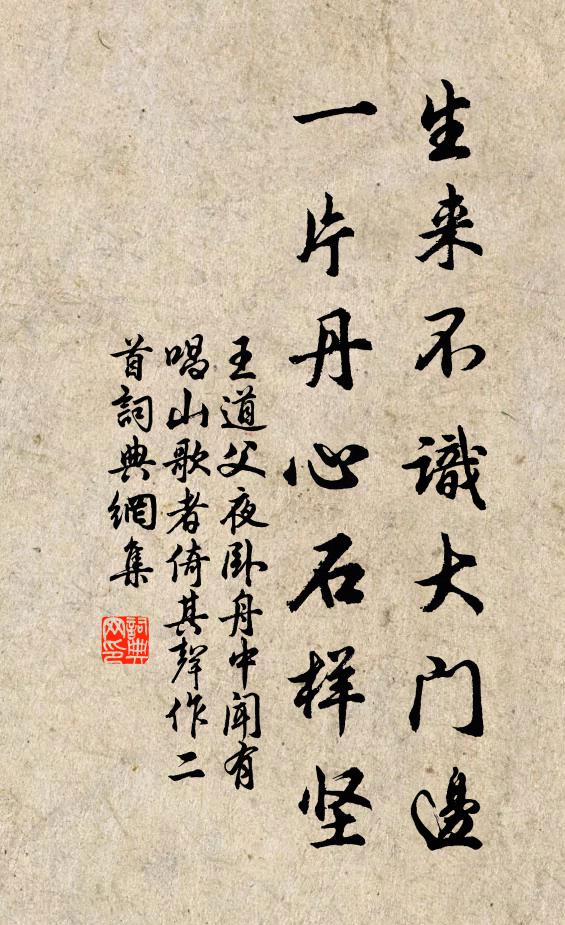 生来不識大门邊
一片丹心石样坚
王道父夜卧舟中闻有
唱山歌者倚其聲作二
首詞典網集
詞典
网印